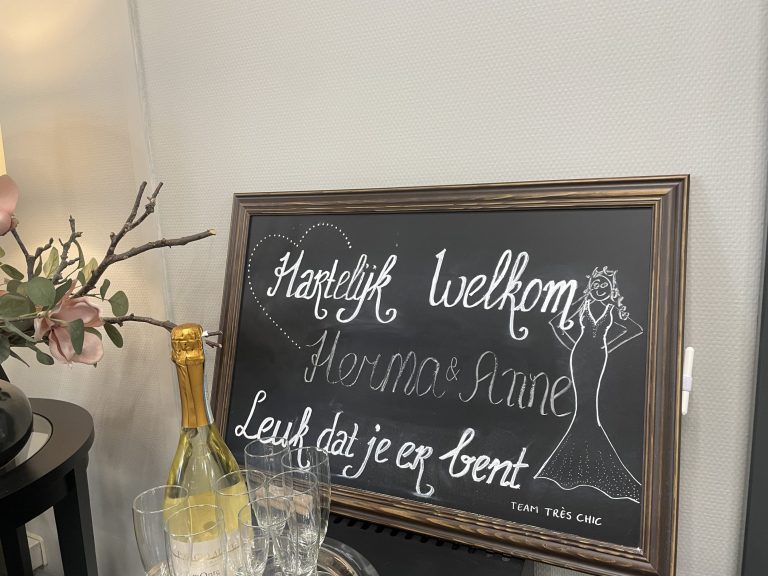 Hartelijk welkom
Herma & Anne
Leuk dat je er bent
TEAM TRÈS CHIC